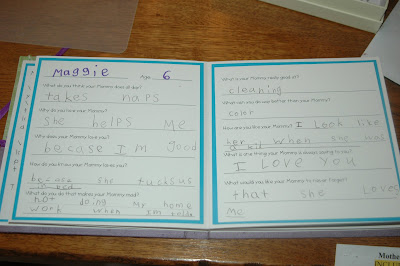 Maggie Age 6
What do you think your Mommy does all day?
takes naps
Why do you love your Mommy?
She helps me
Why does your Mommy love you?
becase I'm good
How do you know your Mommy loves you?
becase she tucks us
in bed
What do you do that makes your Mommy mad?
not doing my home
work when im tolda
What is your Mommy really good at?
cleaning
What can you do better than your Mommy?
color
How are you like your Mommy? I Look like
her when she was
a kid
What is one thing your Mommy is always saying to you?
I LOVE YOU
What would you like your Mommy to never forget?
that she Loves
Me
Mothe
INCLU